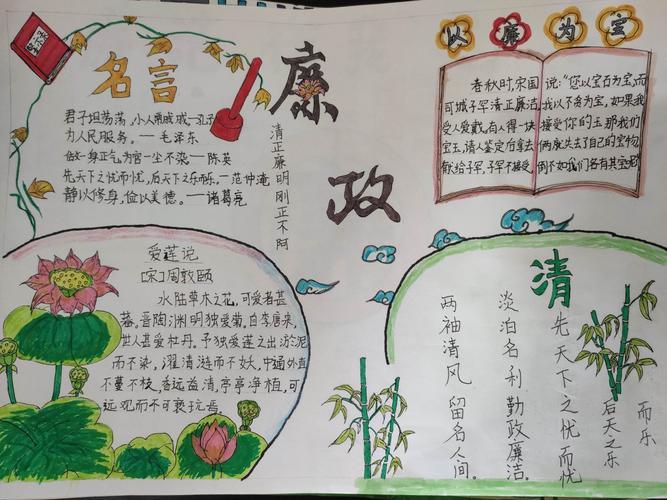 名言
君子坦荡荡,小人常戚戚—孔子
为人民服务。— 毛泽东
做一身正气,为官一尘不染—陈英
先天下之忧而忧,后天下之乐而乐。—范仲淹
静以修身,俭以美德。——诸葛亮
廉
政
清正廉明刚正不阿
以廉为宝
春秋时,宋国
司城子罕清正廉洁,
受人爱戴。有人得一块
宝玉,请人鉴定后拿去
献给子罕,子罕不接受,
说:“您以宝石为宝,而
我以不贪为宝,如果我
接受你的玉,那我们
俩就失去了自己的宝物
倒不如我们各有其宝呢
爱莲说
[宋]周敦颐
水陆草木之花,可爱者甚
蕃。晋陶渊明独爱菊。自李唐来,
世人甚爱牡丹。予独爱莲之出淤泥
而不染,濯清涟而不妖,中通外直
不蔓不枝,香远益清,亭亭净植,可
远观而不可亵玩焉。
清
先天下之忧而忧
后天之乐
而乐
淡泊名利勤政廉洁。
两袖清风 留名人间。